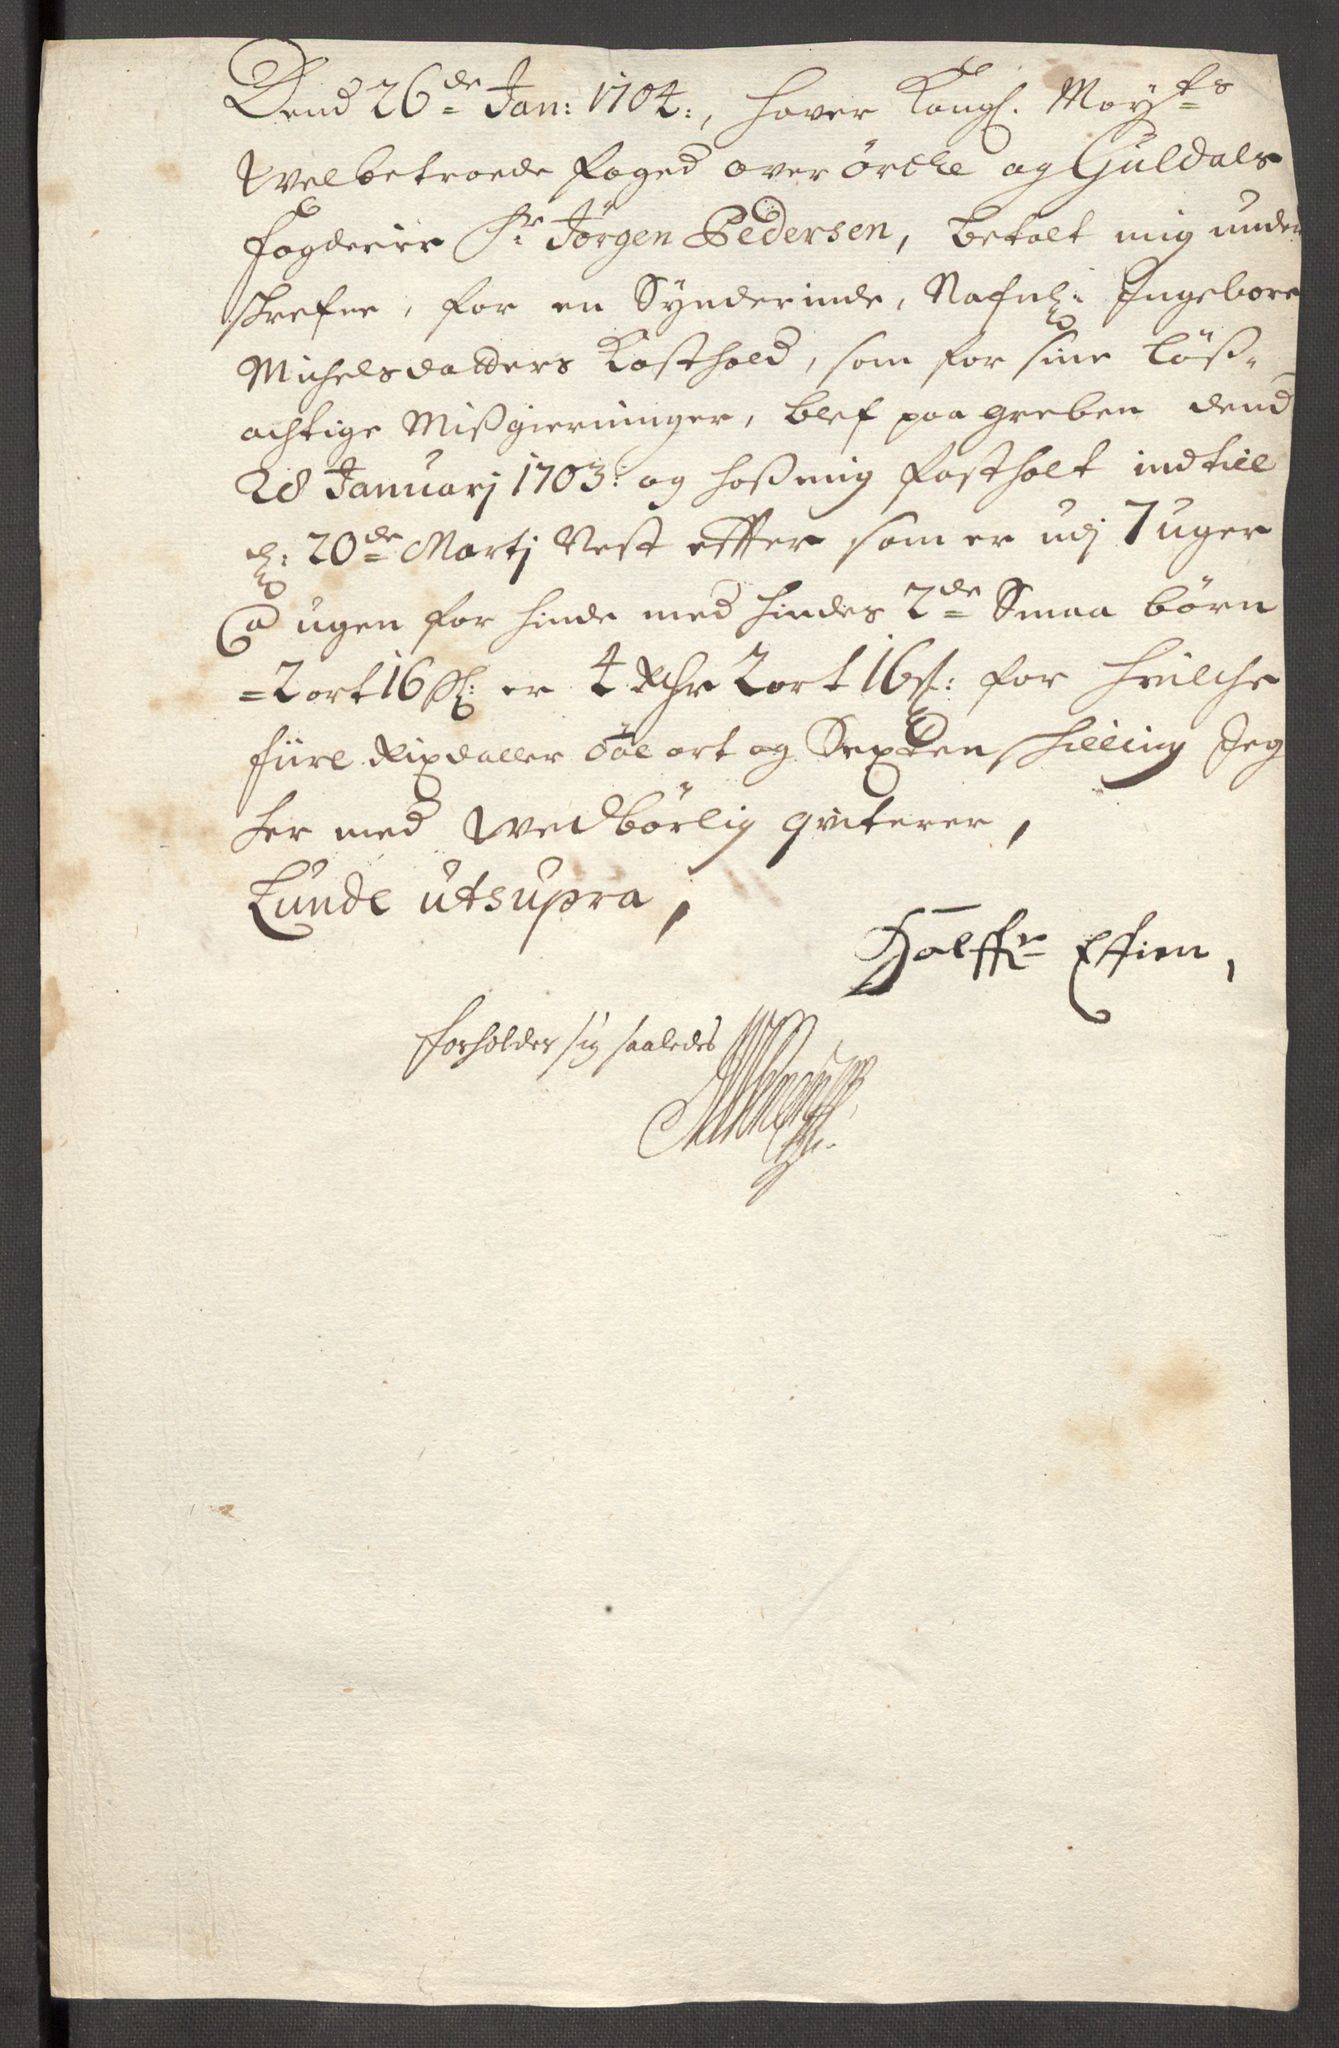 Dend 26de Jan: 1704:, hafver Kongl. Mayts
Welbetroede foged over örche og Guldals
fogderier Sr Jörgen Pedersen, betalt mig under
skrefne, for en Synderinde, Nafnl: Ingebore
Michelsdatters Kosthold, som for sine löß-
achtige Mißgierninger, blef paa greben dend
28 Januarj 1703: og hoß mig fastholt indtill
d: 20de Martj Nest effter som er udj 7 uger
a ugen for hinde med hindes 2de Smaa börn
=2 ort 16 sk: er 4 Rdr 2 ort 16 s: for hvilche
fiire Rixdaller toe ort og Sexten skilling Jeg
her med wedbörlig qviterer,
Lunde ut supra,
forholder sig saaledes